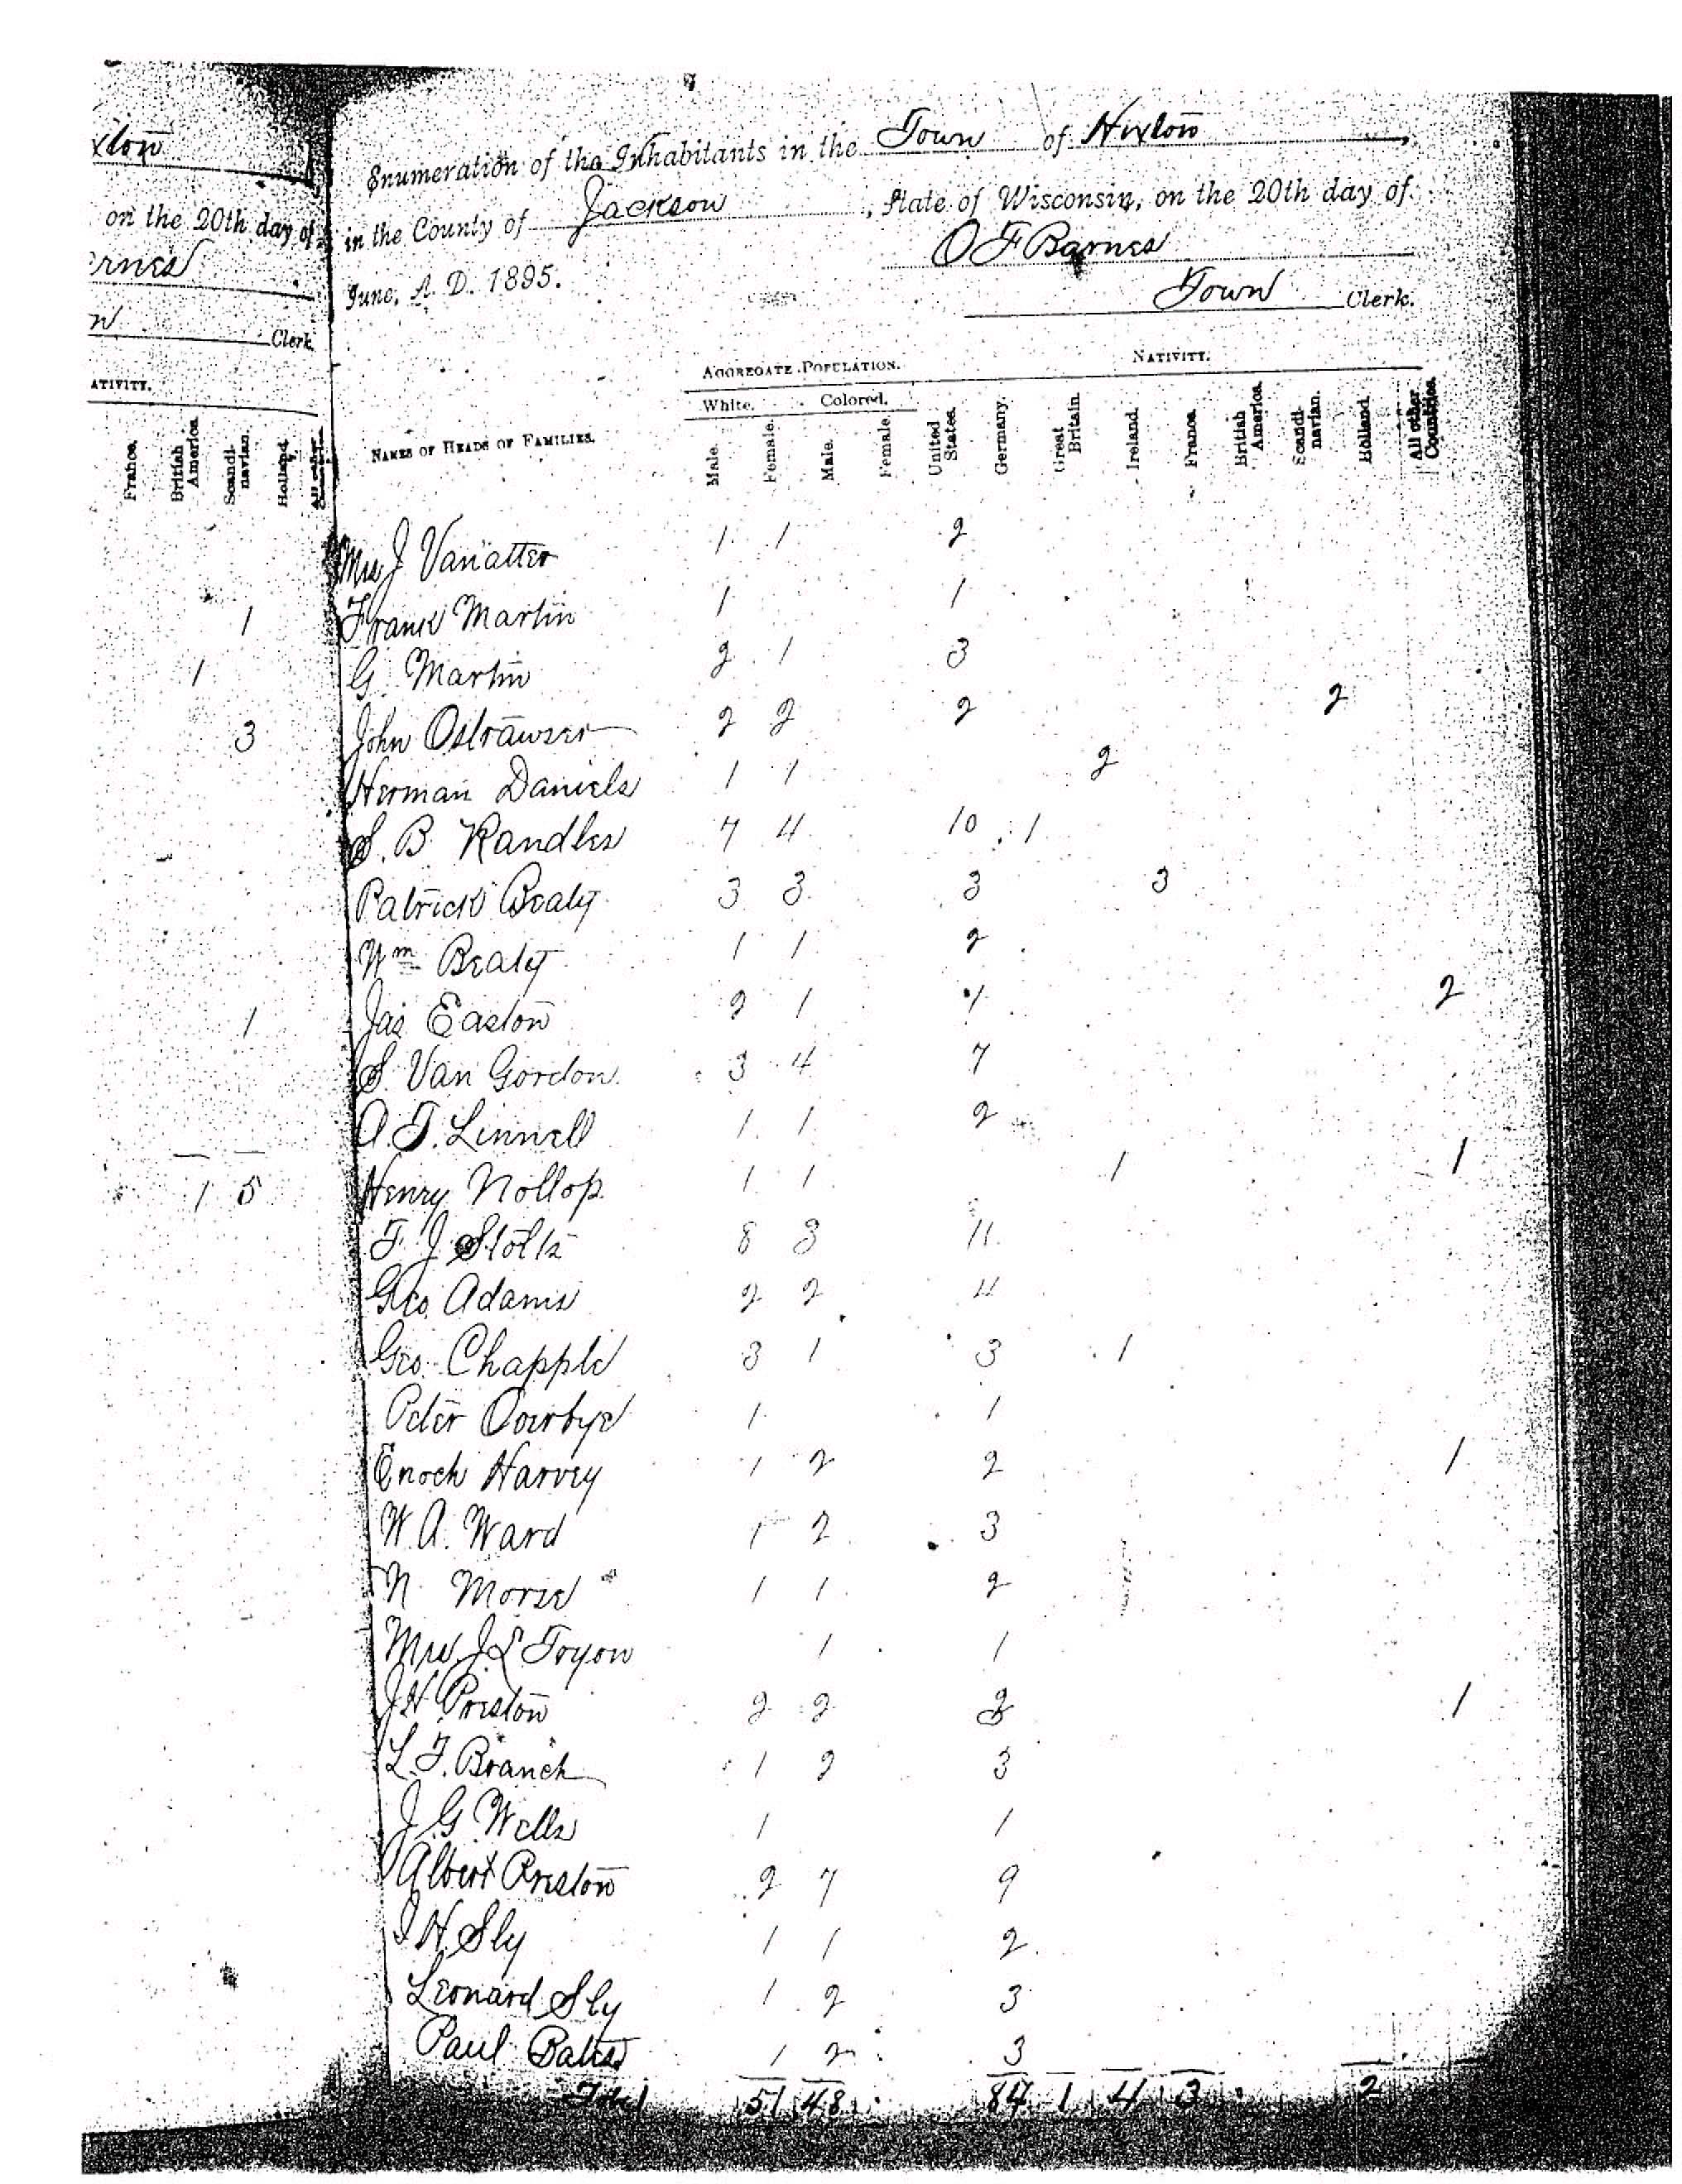 xton
on the 20th day of
ernes
n Clerk.
ATIVITY.
France.
British America.
Scandinavian.
Holland.
1
1
3
1
1 5
Enumeration of the Inhabitants in the Town of Hixton,
in the County of Jackson, State of Wisconsin, on the 20th day of
June, A. D. 1895.
O F Barnes
Town Clerk.
AGGREGATE POPULATION. NATIVITY.
White. Colored.
NAMES OF HEADS OF FAMILIES. Male. Female. Male. Female. United States. Germany. Great Britain. Ireland. France. British America. Scandinavian. Holland. All other Countries.
Mrs J Vanatter 1 1 2
Frank Martin 1 1
G. Martin 2 1 3
John Ostrawser 2 2 2 2
Herman Daniels 1 1 2
S. B. Randles 7 4 10 1
Patrick Bealy 3 3 3 3
Wm Bealy 1 1 2
Jas Easton 2 1 1 2
S. Van Gordon 3 4 7
A. T. Linnell 1 1 2
Henry Nollop 1 1 1 1
F J Stolts 8 3 11
Geo Adams 2 2 4
Geo. Chapple 3 1 3 1
Peter 1 1
Enoch Harvey 1 2 2 1
W. A. Ward 1 2 3
N. Morse 1 1 2
Mrs. J L Toyon 1 1
J H Preston 2 2 3 1
L. F. Branch 1 2 3
J. G Wells 1 1
Albert Preston 2 7 9
I H Sly 1 1 2
Leonard Sly 1 2 3
Paul Bates 1 2 3
Total 51 48 84 1 4 3 2